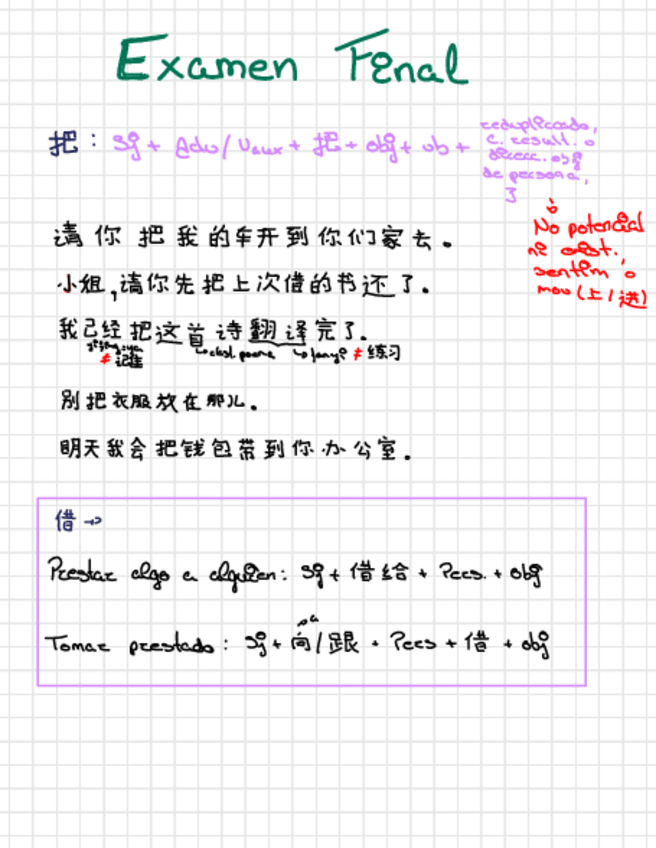 Examen Final
把: Sj + Adv/Vaux + 把 + obj + vb +
reduplicado,
c. result. o
direcc. obj
de persona,
了
↓
No potencial
ni exist.,
sentim o
mov (上/进)
请你把我的车开到你们家去。
小姐,请你先把上次借的书还了。
我已经把这首诗翻译完了。
≠ 记住
↳ clasf. poema
≠ 练习
别把衣服放在那儿。
明天我会把钱包带到你办公室。
借 →
Prestar algo a alguien: Sj + 借给 + Pers. + obj
Tomar prestado: Sj + 向/跟 + Pers + 借 + obj